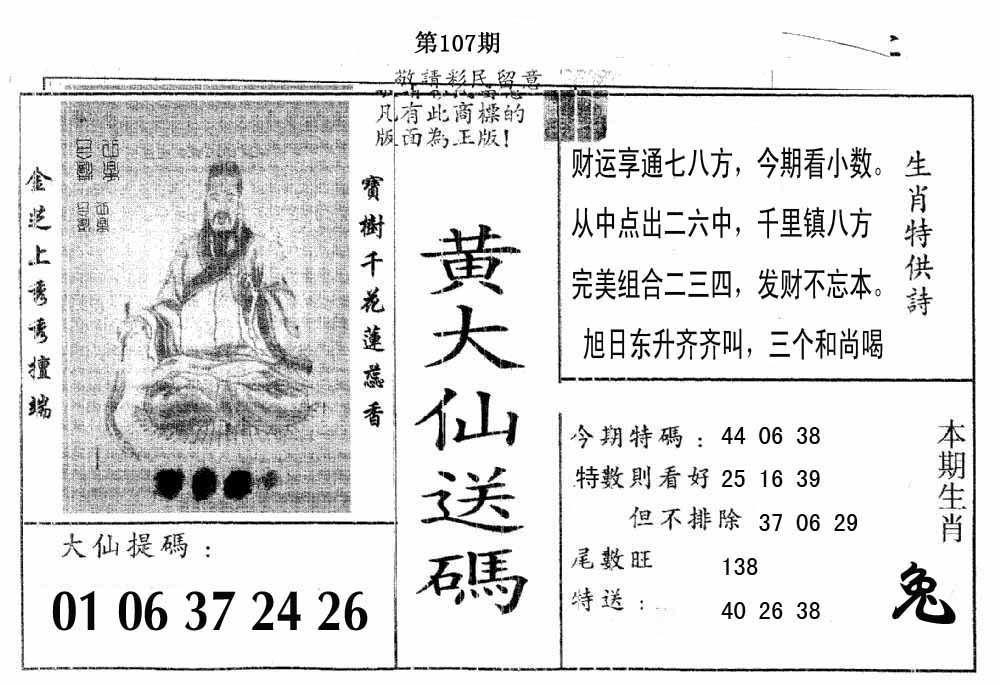 第107期
敬請彩民留意
凡有此商標的
版面為正版!
金芝上秀秀擅端
寶樹千花蓮蕊香
大仙提碼：
01 06 37 24 26
黃大仙送碼
生肖特供詩
财运享通七八方，今期看小数。
从中点出二六中，千里镇八方
完美组合二三四，发财不忘本。
旭日东升齐齐叫，三个和尚喝
今期特碼：44 06 38
特數則看好 25 16 39
但不排除 37 06 29
尾數旺 138
特送：40 26 38
本期生肖
兔